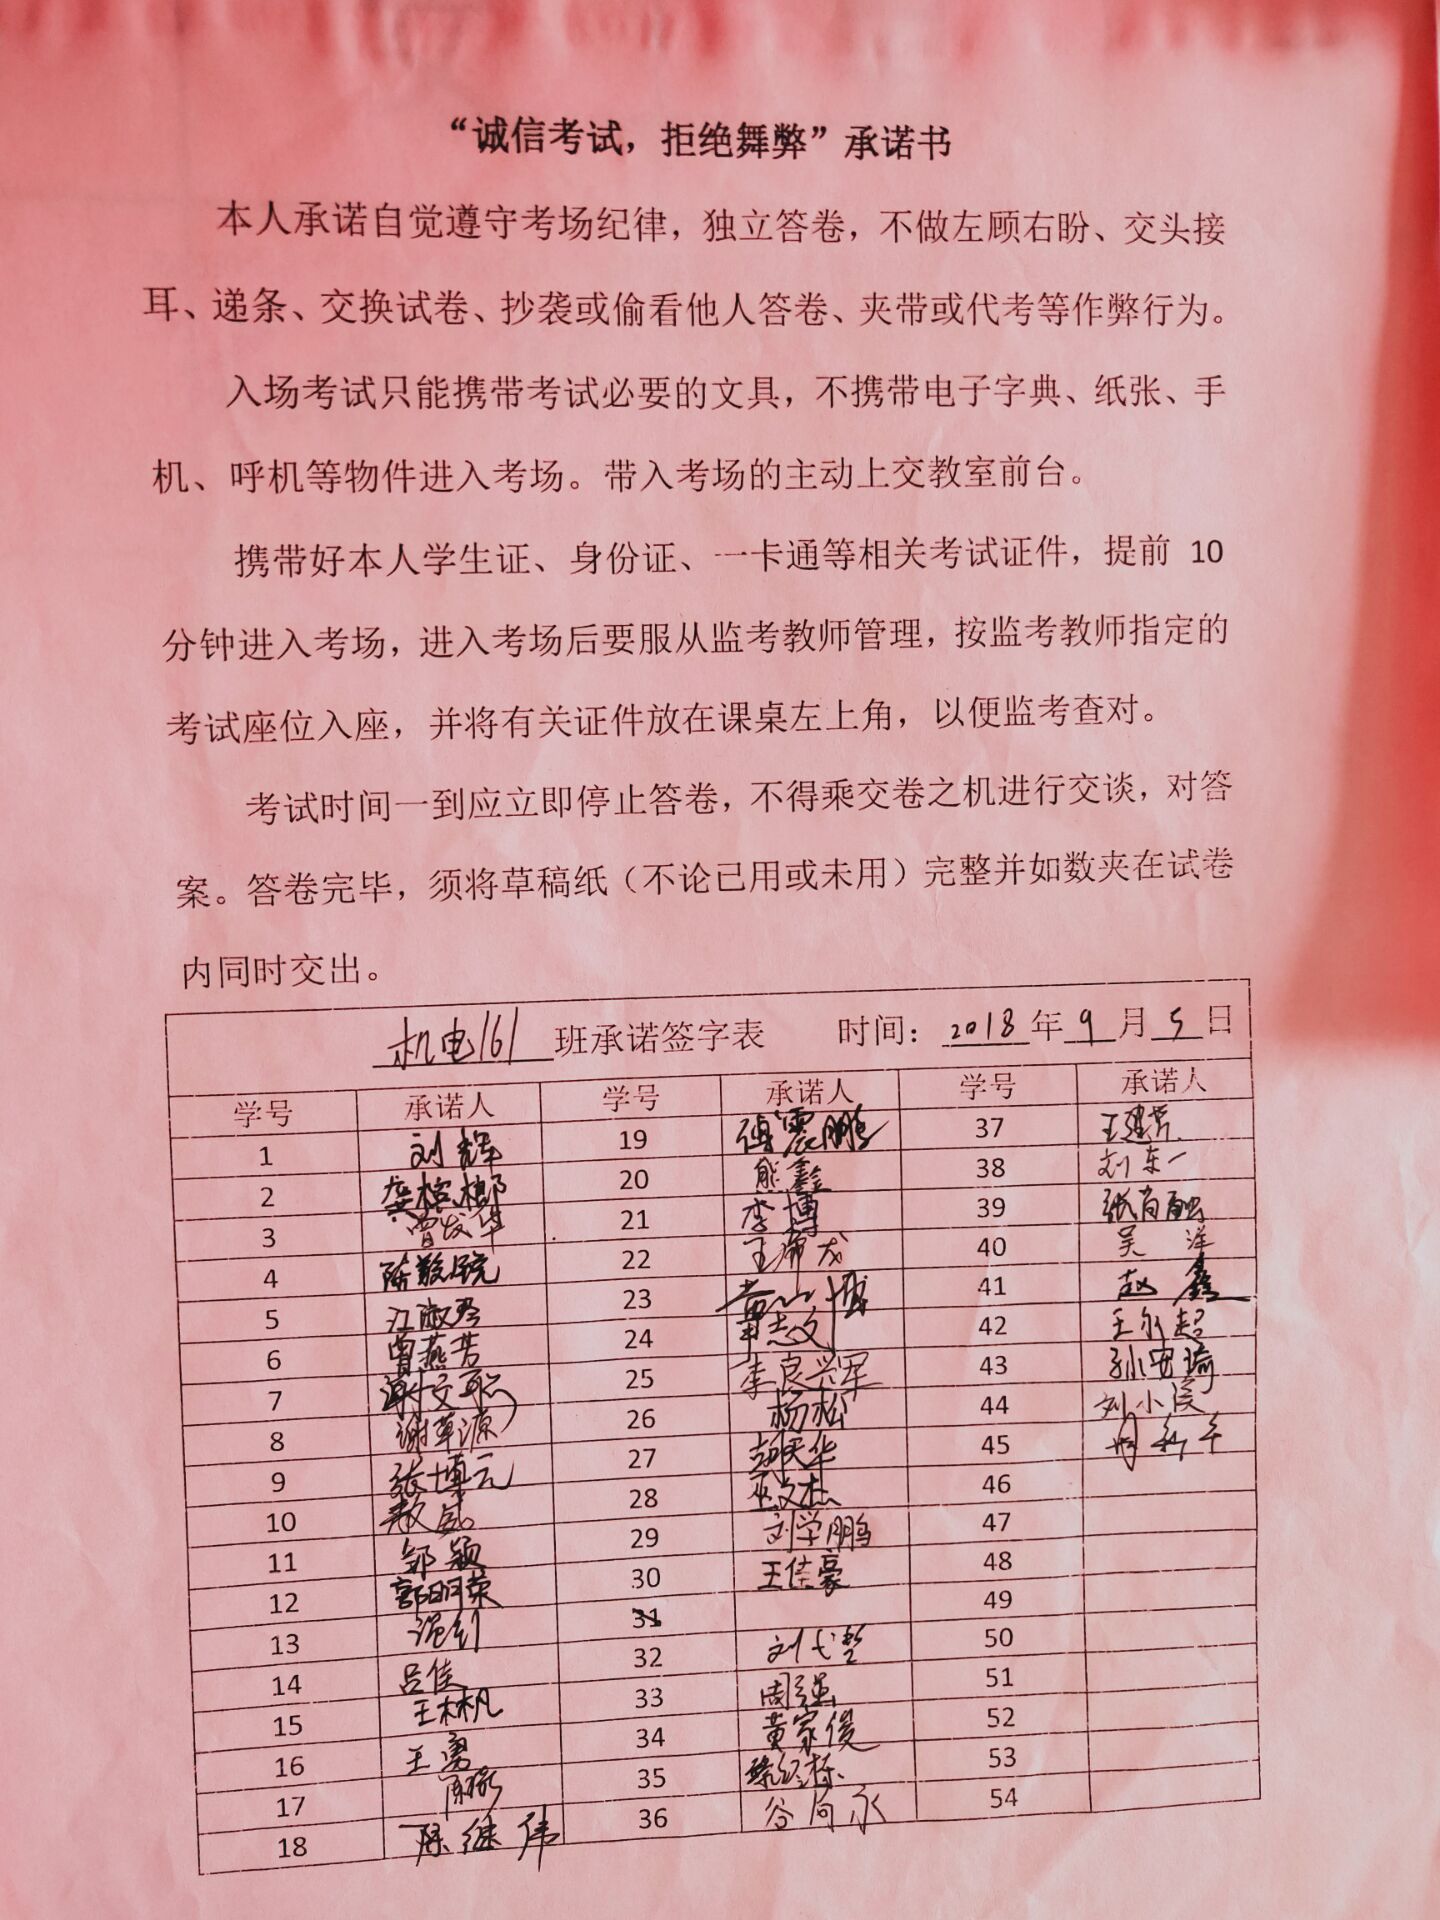 “诚信考试，拒绝舞弊”承诺书
本人承诺自觉遵守考场纪律，独立答卷，不做左顾右盼、交头接
耳、递条、交换试卷、抄袭或偷看他人答卷、夹带或代考等作弊行为。
入场考试只能携带考试必要的文具，不携带电子字典、纸张、手
机、呼机等物件进入考场。带入考场的主动上交教室前台。
携带好本人学生证、身份证、一卡通等相关考试证件，提前 10
分钟进入考场，进入考场后要服从监考教师管理，按监考教师指定的
考试座位入座，并将有关证件放在课桌左上角，以便监考查对。
考试时间一到应立即停止答卷，不得乘交卷之机进行交谈，对答
案。答卷完毕，须将草稿纸（不论已用或未用）完整并如数夹在试卷
内同时交出。
机电161 班承诺签字表 时间：2018 年 9 月 5 日
学号 承诺人 学号 承诺人 学号 承诺人
1 刘辉 19 傅震鹏 37 王建芳
2 龚槟榔 20 熊鑫 38 刘东一
3 曾发华 21 李博 39 张肖融
4 陈毅锐 22 王席龙 40 吴洋
5 江淑琴 23 黄山博 41 赵鑫
6 曾燕芳 24 章志文 42 王永超
7 谢文聪 25 李良兴军 43 孙安琦
8 谢草源 26 杨松 44 刘小侯
9 张博元 27 彭天华 45
10 敖威 28 巫文杰 46
11 邹颖 29 刘学鹏 47
12 郭明荣 30 王佳豪 48
13 31 49
14 吕佳 32 刘代哲 50
15 王林枫 33 周强 51
16 王勇 34 黄家俊 52
17 35 53
18 陈继伟 36 谷向永 54